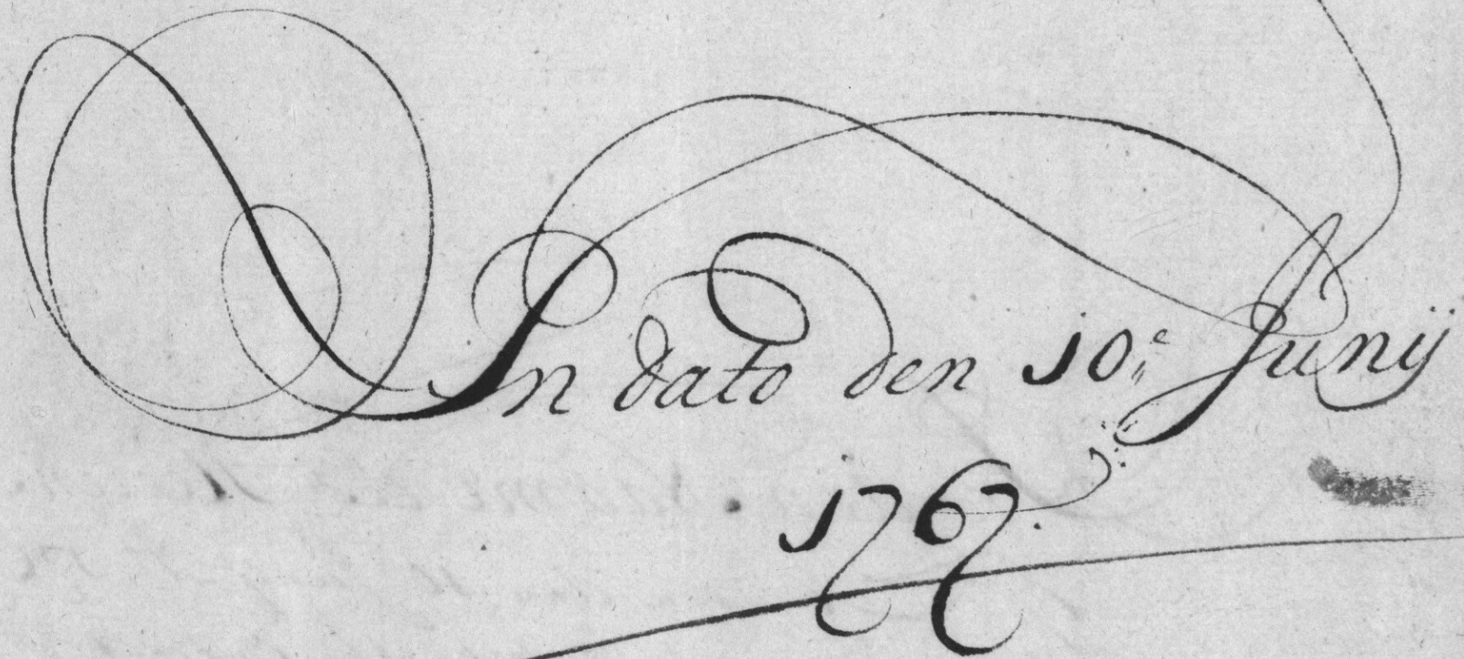 In dato den 10:e Junij
1767.